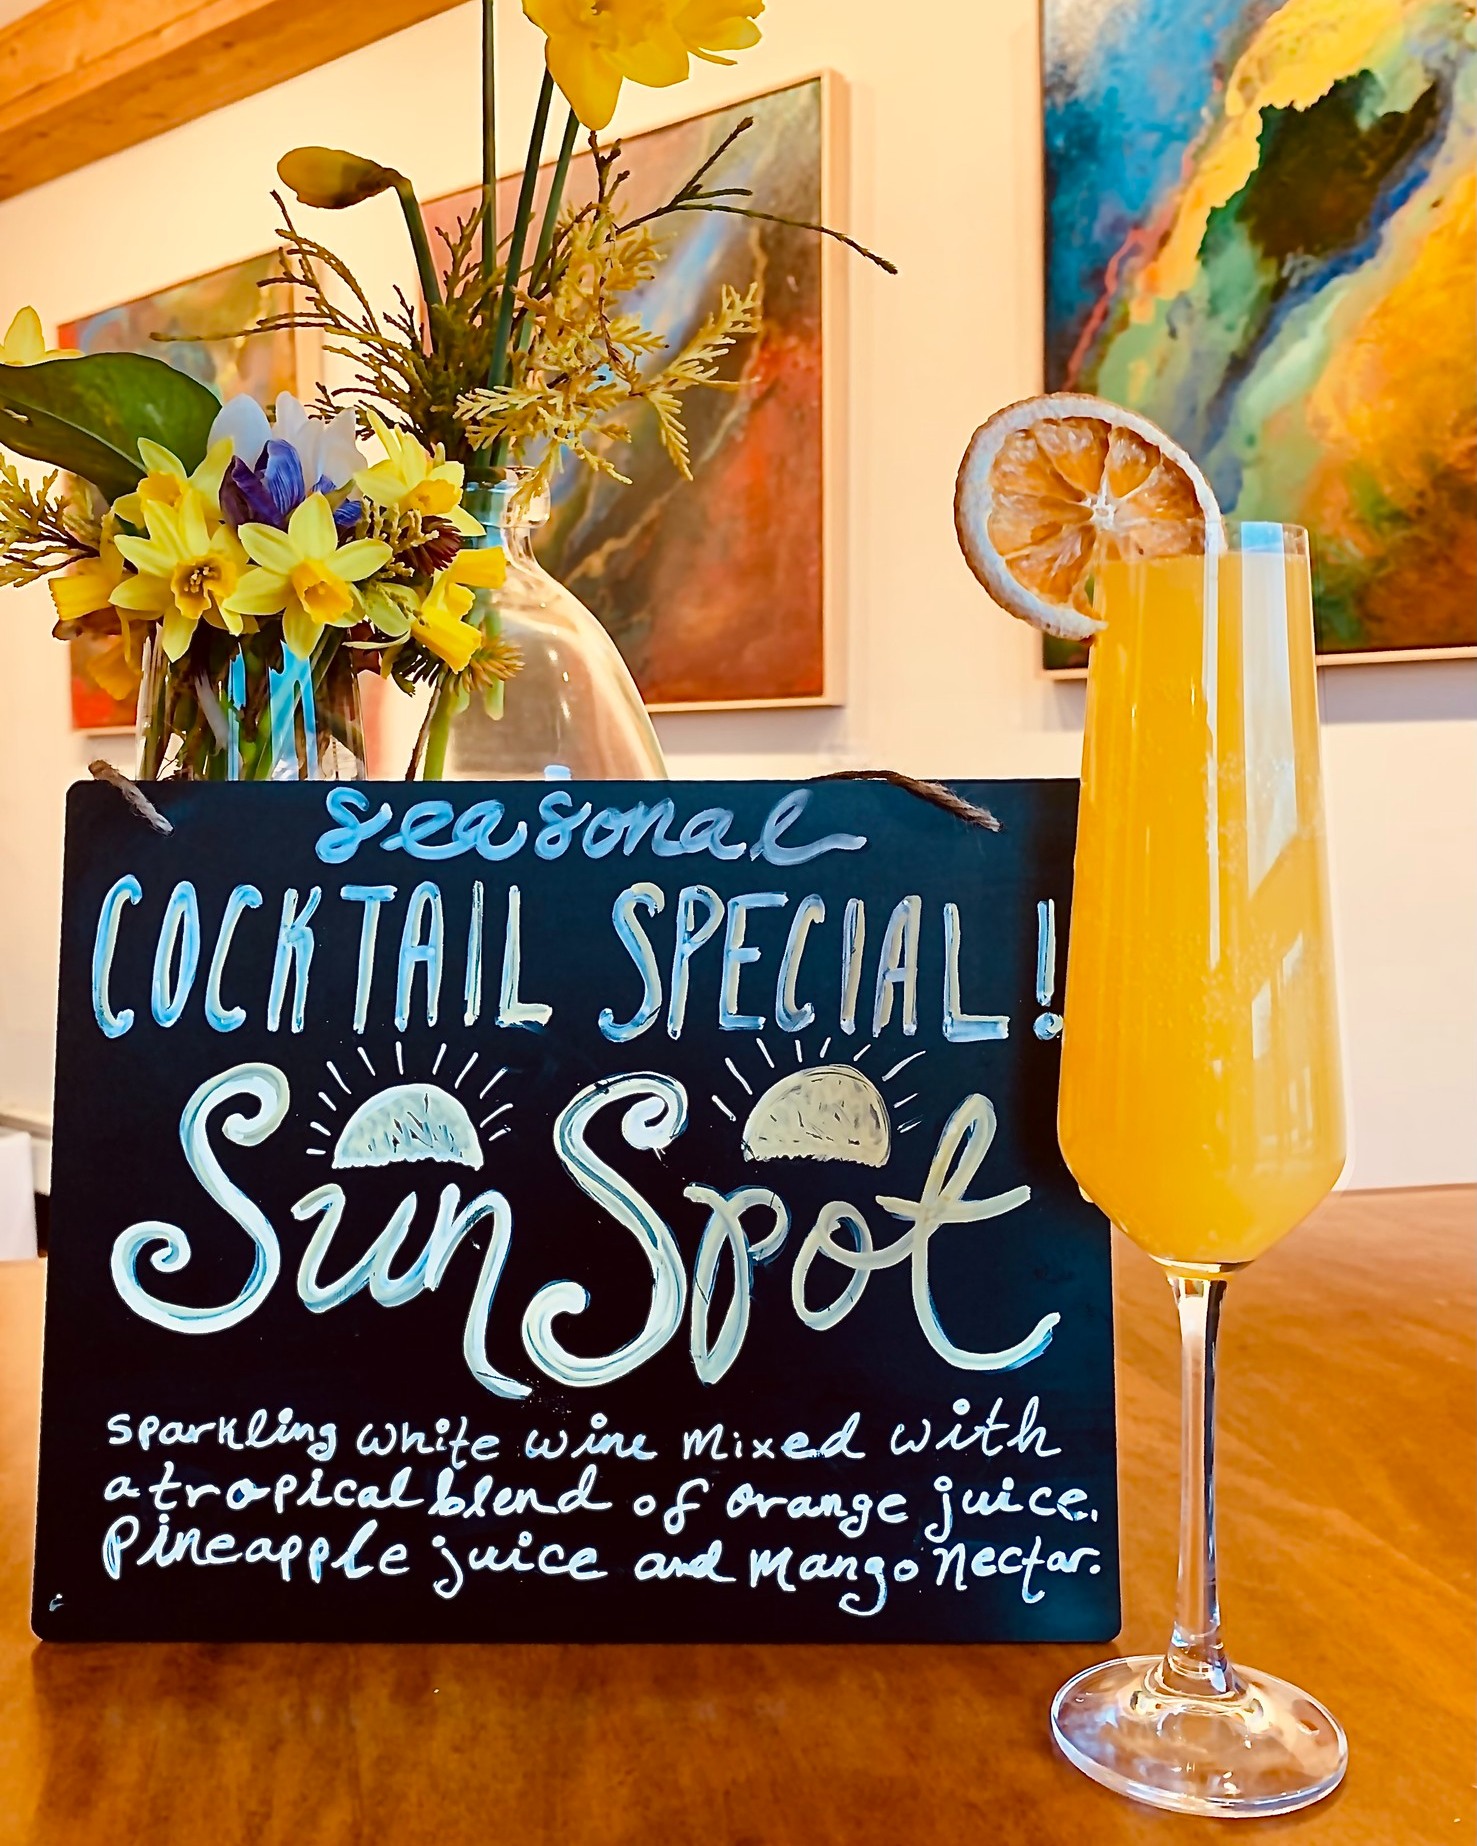 seasonal
COCKTAIL SPECIAL!
Sun Spot
sparkling white wine mixed with
a tropical blend of orange juice,
pineapple juice and mango nectar.